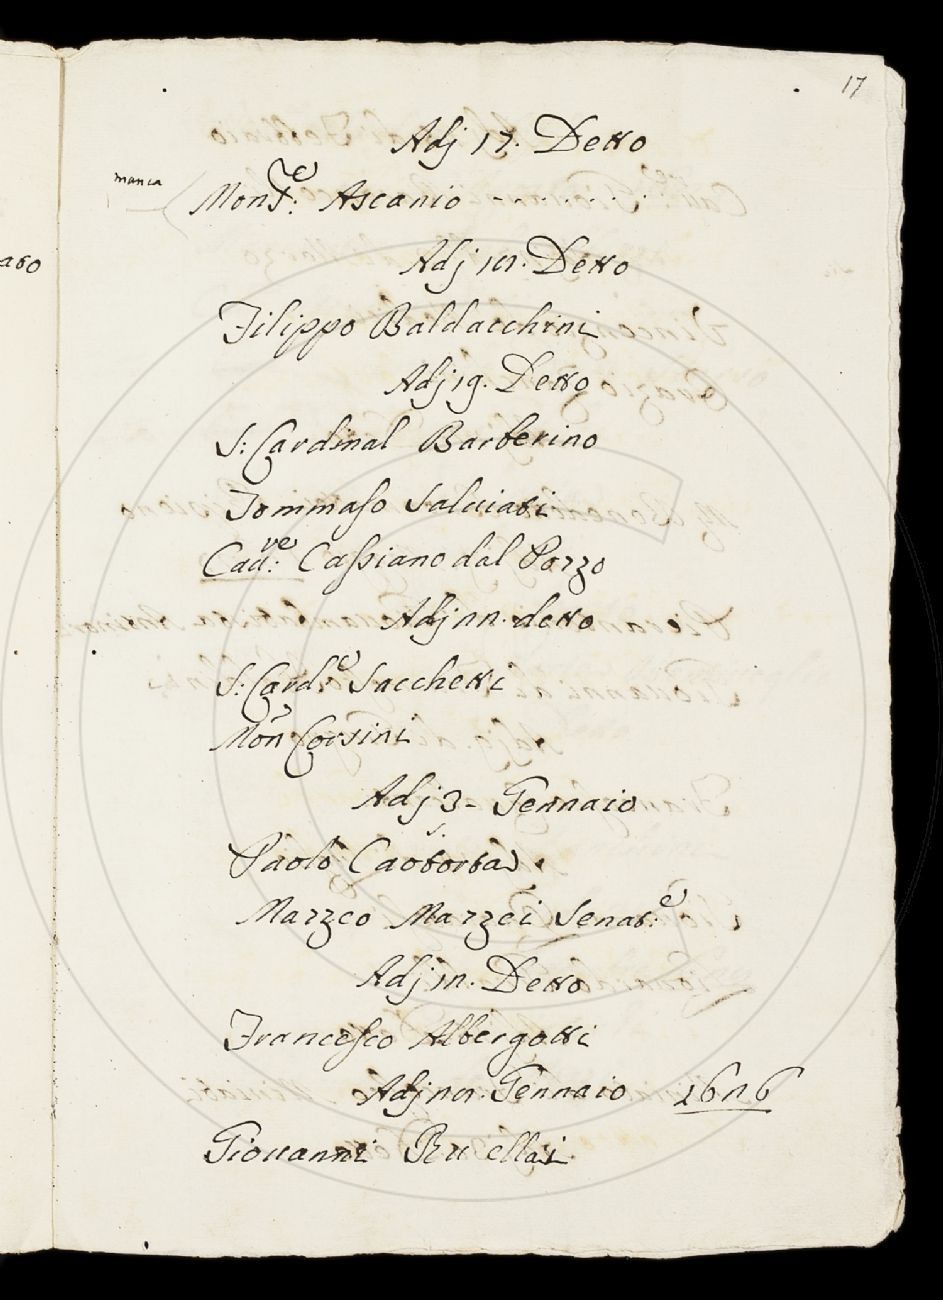 17
Adj 17. Detto
manca
Monſ:e Ascanio - - . . . . .
ato
Adj 18. Detto
Filippo Baldacchini
Adj 19. Detto
S: Cardinal Barberino
Tommaso Salviati
Cau:re Cassiano dal Pozzo
Adj 22. detto
S: Card:e Sacchetti
Mon Corsini
Adj 3 - Gennaio
Paolo
Mazzeo Mazzei Senat:e
Adj 12. Detto
Francesco Albergotti
Adj 28. Gennaio 1626
Giouanni Rucellai